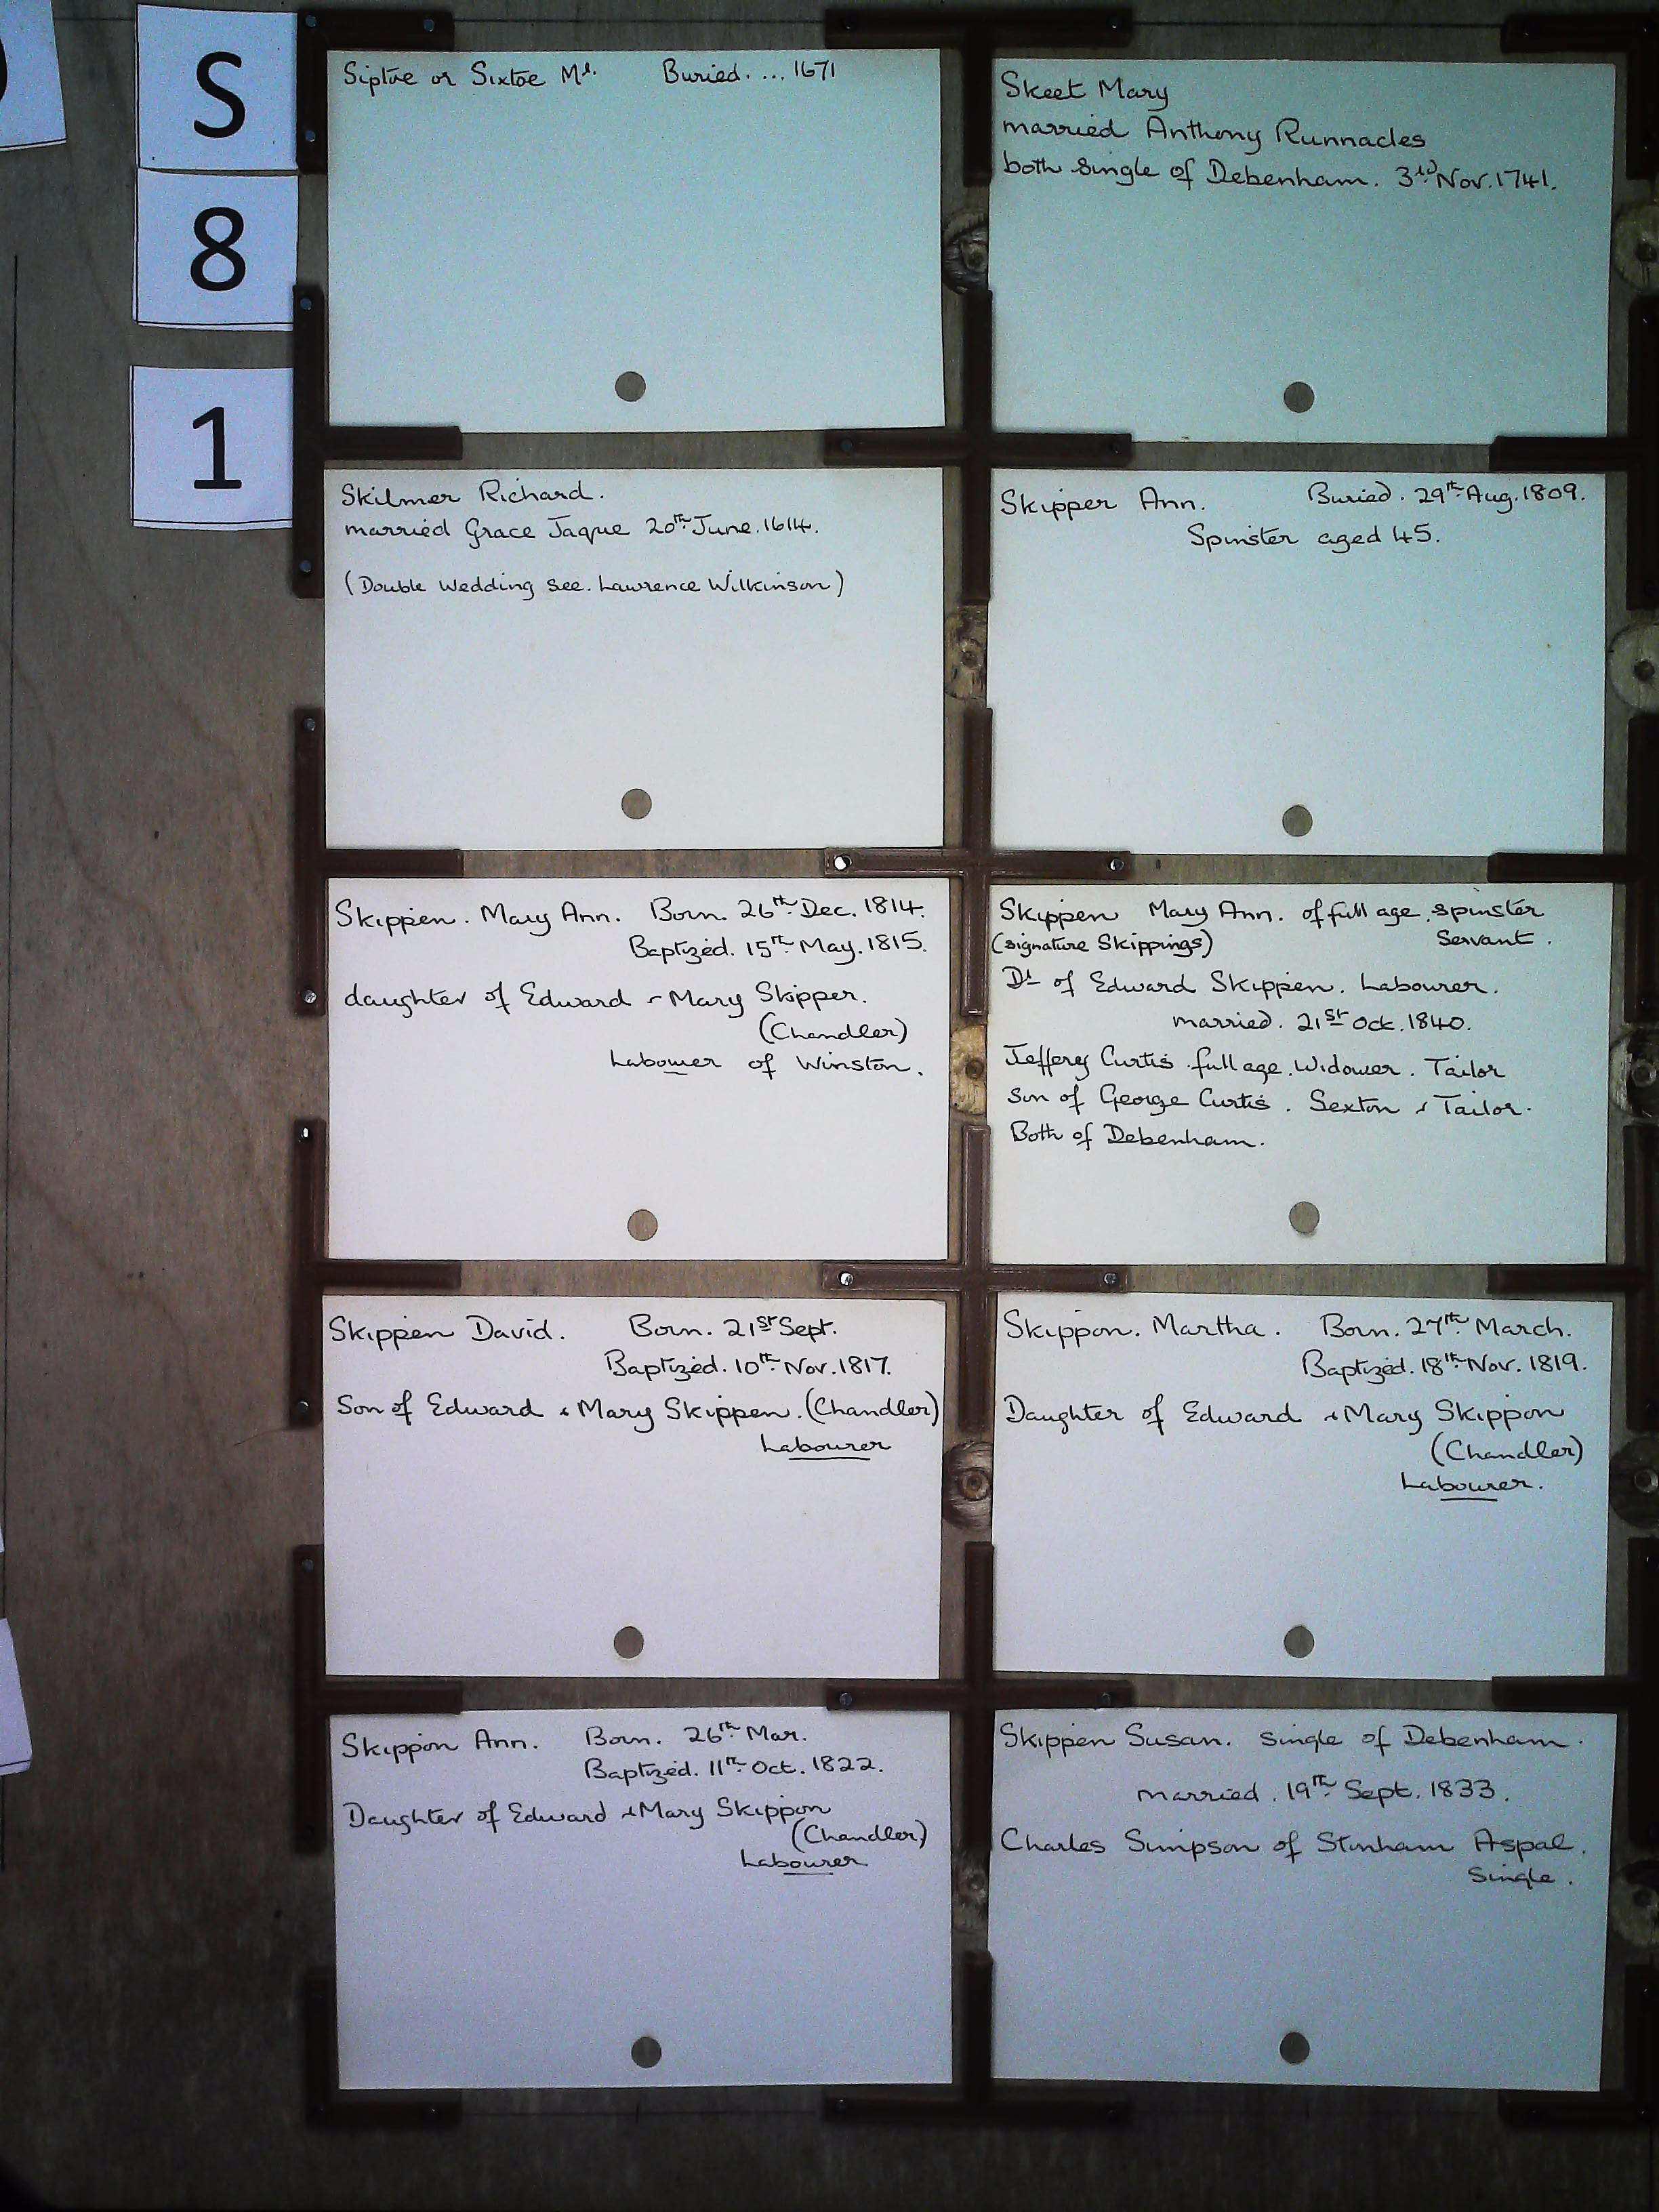 S
8
1
Siptoe or Sixtoe Mr. Buried. ... 1671
Skeet Mary
married Anthony Runnacles
both single of Debenham. 3rd Nov. 1741.
Skilmer Richard.
married Grace Jaque 20th June. 1614.
(Double Wedding see. Lawrence Wilkinson)
Skipper Ann. Buried. 29th Aug. 1809.
Spinster aged 45.
Skippen. Mary Ann. Born. 26th Dec. 1814.
Baptized. 15th May. 1815.
daughter of Edward & Mary Skipper.
(Chandler)
Labourer of Winston.
Skippen Mary Ann. of full age. spinster
(signature Skippings) Servant.
Dr of Edward Skippen. Labourer.
married. 21st Oct. 1840.
Jeffery Curtis. full age. Widower. Tailor
Son of George Curtis. Sexton & Tailor.
Both of Debenham.
Skippen David. Born. 21st Sept.
Baptized. 10th Nov. 1817.
Son of Edward & Mary Skippen. (Chandler)
Labourer
Skippon. Martha. Born. 27th March.
Baptized. 18th Nov. 1819.
Daughter of Edward & Mary Skippon
(Chandler)
Labourer.
Skippon Ann. Born. 26th Mar.
Baptized. 11th Oct. 1822.
Daughter of Edward & Mary Skippon
(Chandler)
Labourer
Skippen Susan. Single of Debenham.
married. 19th Sept. 1833.
Charles Simpson of Stonham Aspal.
Single.